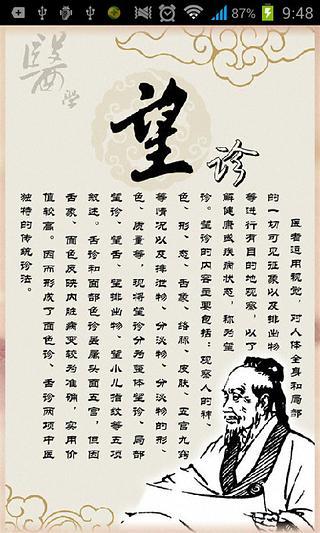 87% 9:48
醫
学
望
诊
医者运用视觉，对人体全身和局部
的一切可见征象以及排出物
等进行有目的地观察，以了
解健康或疾病状态，称为望
诊。望诊的内容主要包括：观察人的神、
色、形、态、舌象、络脉、皮肤、五官九窍
等情况以及排泄物、分泌物、分泌物的形、
色、质量等，现将望诊分为整体望诊、局部
望诊、望舌、望排出物、望小儿指纹等五项
叙述。舌诊和面部色诊虽属头面五官，但因
舌象、面色反映内脏病变较为准确，实用价
值较高。因而形成了面色诊、舌诊两项中医
独特的传统诊法。